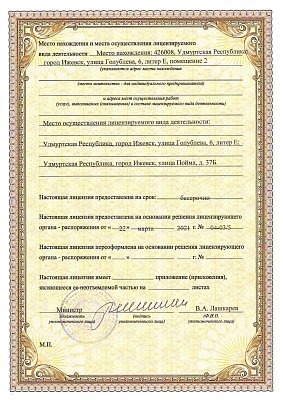 Место нахождения и места осуществления лицензируемого
вида деятельности Место нахождения: 426008, Удмуртская Республика,
город Ижевск, улица Голублева, 6, литер Е, помещение 2
(указываются адрес места нахождения
(место жительства - для индивидуального предпринимателя)
и адреса мест осуществления работ
(услуг), выполняемых (оказываемых) в составе лицензируемого вида деятельности)
Место осуществления лицензируемого вида деятельности:
Удмуртская Республика, город Ижевск, улица Голублева, 6, литер Е;
Удмуртская Республика, город Ижевск, улица Пойма, д. 37Б.
Настоящая лицензия предоставлена на срок: бессрочно
Настоящая лицензия предоставлена на основании решения лицензирующего
органа - распоряжения от « 22 » марта 2021 г. № 04-03/5
Настоящая лицензия переоформлена на основании решения лицензирующего
органа - распоряжения от « » г. №
Настоящая лицензия имеет приложение (приложения),
являющееся ее неотъемлемой частью на листах
Министр В.А. Лашкарев
(должность (подпись (ф.И.О.
уполномоченного лица) уполномоченного лица) уполномоченного лица)
М.П.